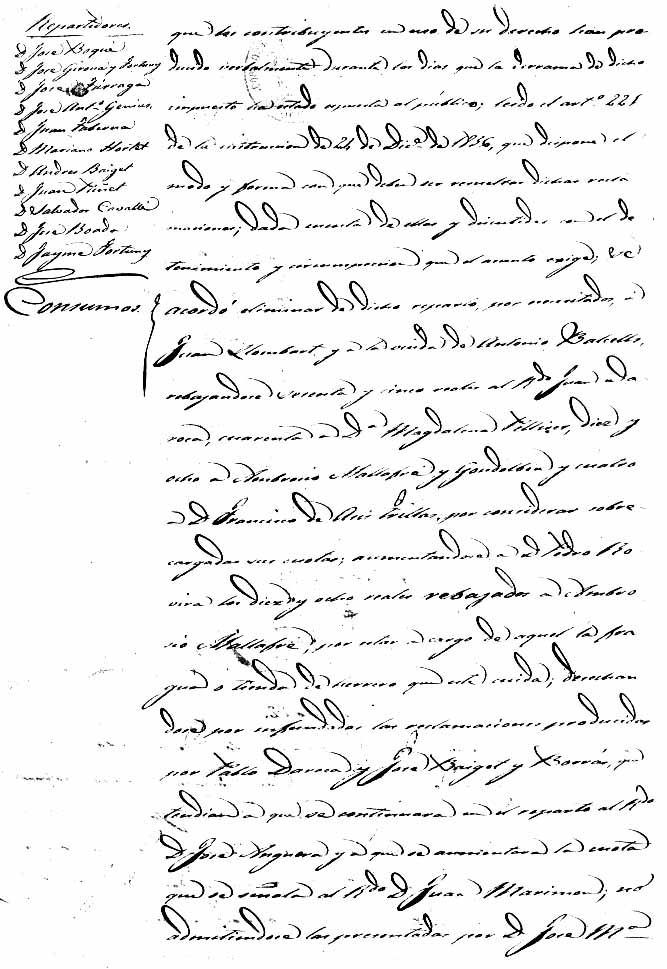 Repartidores.
D. José Boqué
D. José Girona y Fortuny
D. José Fárraga
D. José Antº Genius
D. Juan Taberna
D. Mariano Hortet
D. Andres Baiget
D. Juan Tuset
D. Salvador Cavallé
D. José Boada
D. Jayme Fortuny
Consumos.
que los contribuyentes en uso de su derecho han pro
ducido verbalmente durante los dias que la derrama de dicho
impuesto ha estado espuesta al público; leido el artº 221
de la instruccion de 24 de Dicº de 1856, que dispone el
modo y forma con que deben ser resueltas dichas recla
maciones; dada cuenta de ellas y discutidas con el de
tenimiento y circunspeccion que el asunto exige; se
acordó eliminar de dicho reparto, por necesitados, á
Juan Llombart, y á la viuda de Antonio Balcells,
rebajandose sesenta y cinco reales al Rdo Juan
roca, cuarenta á Dª Magdalena, diez y
ocho á Ambrosio Mallafré y y cuatro
a D. Francisco de Asis Trillas, por considerar sobre-
cargadas sus cuotas; aumentandose a D. Pedro Ro
vira los diez y ocho reales rebajados a Ambro
sio Mallafré, por estar a cargo de aquel la fra
gua o tienda de herrero que este cuida; desechan
dose por infundadas las reclamaciones producidas
por Pablo Daroca y José Baiget y Borrás, que
tendian a que se continuara en el reparto al Rdo
D. José Anguera y a que se aumentara la cuota
que se señala al Rdo D. Juan Marimon; no
admitiendose las presentadas por D. José Mª